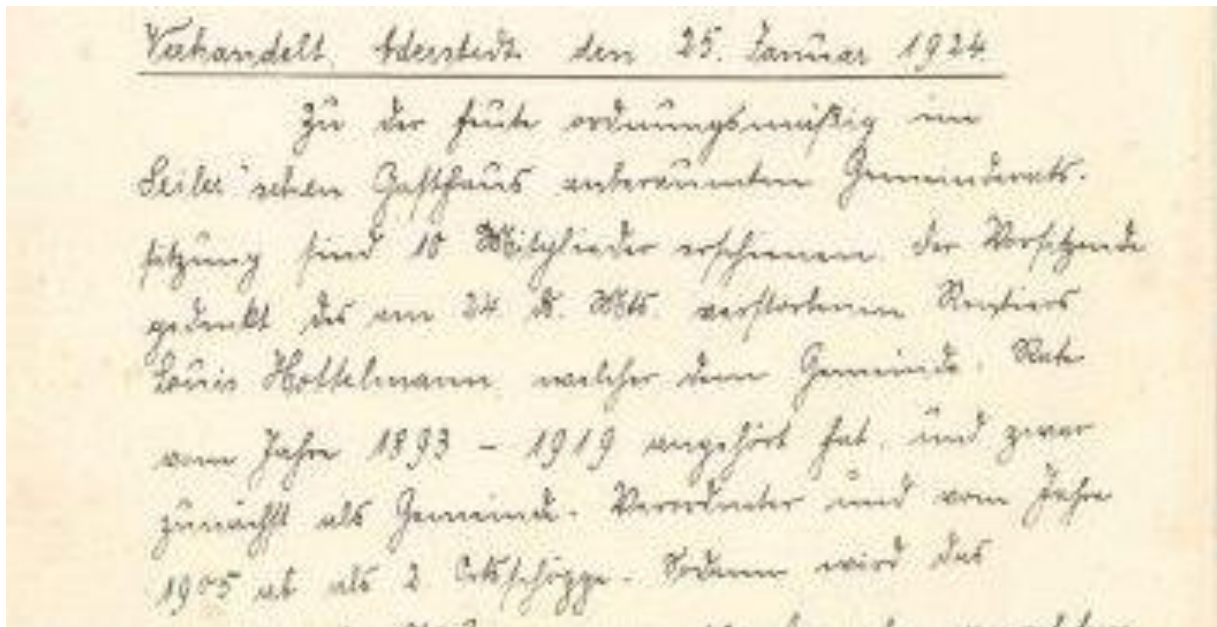 Verhandelt, Aderstedt den 25. Januar 1924.
Zu der heute ordnungsmäßig im
Seiler'schen Gasthaus anberaumten Gemeinderats-
sitzung sind 10 Mitglieder erschienen. Der Vorsitzende
gedenkt des am 24. d. Mts. verstorbenen Rentiers
Louis Hottelmann, welcher dem Gemeinde-Rate
vom Jahre 1893 - 1919 angehört hat, und zwar
zunächst als Gemeinde-Verordneter und vom Jahre
1905 ab als 2 Ortsschöppe. Sodann wird das